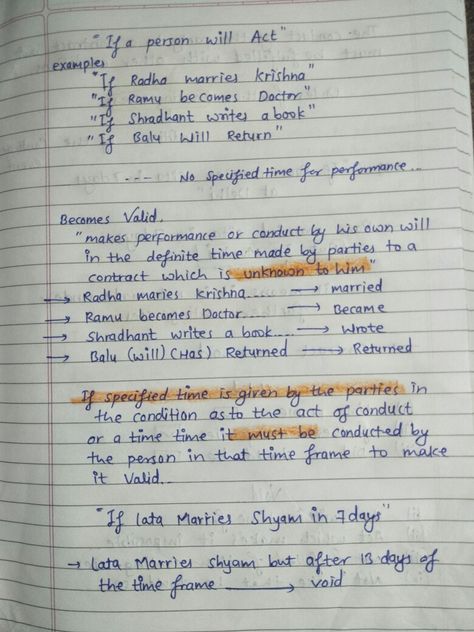 "If a person will Act"
examples
"If Radha marries Krishna"
"If Ramu becomes Doctor"
"If Shradhant writes a book"
"If Balu Will Return"
---- No specified time for performance...
Becomes Valid.
"makes performance or conduct by his own will
in the definite time made by parties to a
contract which is unknown to him"
→ Radha maries Krishna.... → married
→ Ramu becomes Doctor... → Became
→ Shradhant writes a book.... → Wrote
→ Balu (will) (Has) Returned → Returned
If specified time is given by the parties in
the condition as to the act of conduct
or a time time it must be conducted by
the person in that time frame to make
it Valid..
"If Lata Marries Shyam in 7days"
→ Lata Marries shyam but after 13 days of
the time frame → void